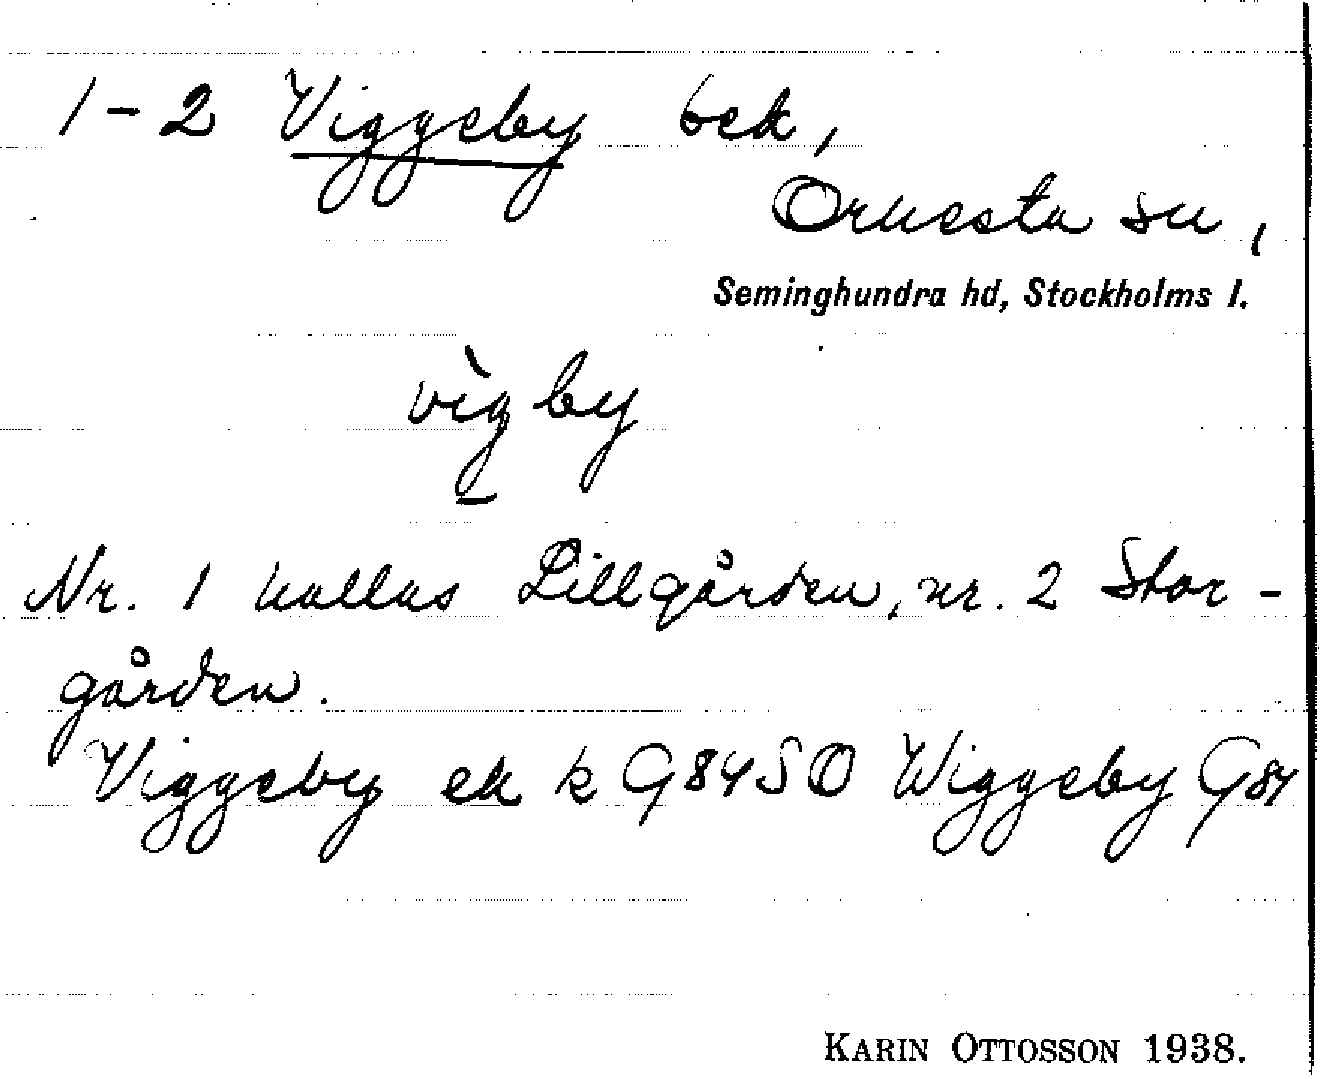 1-2 Viggeby bek,
Orkesta sn,
Seminghundra hd, Stockholms l.
vìgby
Nr. 1 kallas Lillgården, nr. 2 Stor-
gården.
Viggeby ek k G84SO Wiggeby G84
KARIN OTTOSSON 1938.